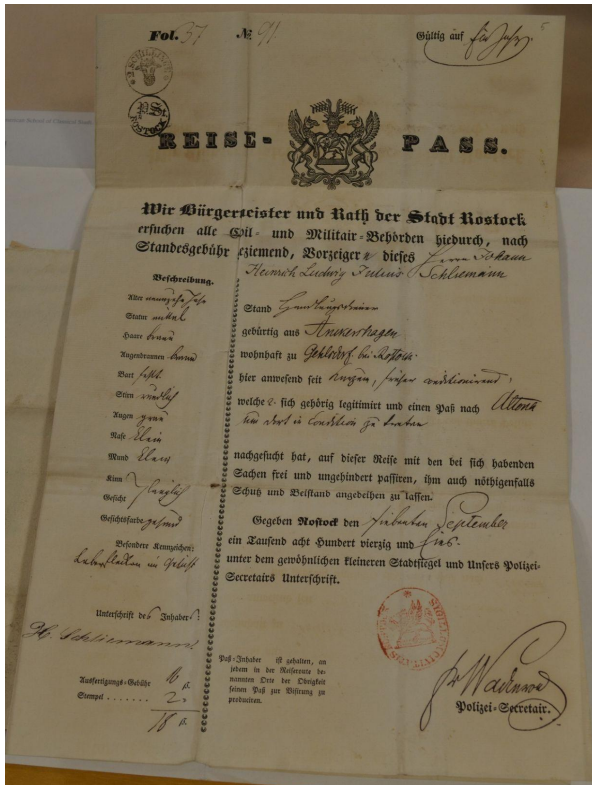 Fol. 37 № 91. Gültig auf Ein Jahr.
REISE-PASS.
Wir Bürgermeister und Rath der Stadt Rostock
ersuchen alle Civil- und Militair-Behörden hiedurch, nach
Standesgebühr geziemend, Vorzeiger dieses Herrn Johann
Heinrich Ludwig Julius Schliemann
Beschreibung.
Alter neunzehn Jahr
Statur mittel
Haare braun
Augenbraunen braun
Bart fehlt
Stirn rundlich
Augen grau
Nase klein
Mund klein
Kinn
Gesicht länglich
Gesichtsfarbe gesund
Besondere Kennzeichen:
Leberflecken im Gesicht
Unterschrift des Inhabers:
H. Schliemann
Ausfertigungs-Gebühr 16 ß.
Stempel ....... 2 ß.
18 ß.
Stand Handlungsdiener
gebürtig aus Anckershagen
wohnhaft zu Gehlsdorf bei Rostock
hier anwesend seit früher conditionirend,
welche sich gehörig legitimirt und einen Paß nach Altona
um dort in Condition zu treten
nachgesucht hat, auf dieser Reise mit den bei sich habenden
Sachen frei und ungehindert passiren, ihm auch nöthigenfalls
Schutz und Beistand angedeihen zu lassen.
Gegeben Rostock den siebenten September
ein Tausend acht Hundert vierzig und Eins.
unter dem gewöhnlichen kleineren Stadtsiegel und Unsers Polizei-
Secretairs Unterschrift.
Paß-Inhaber ist gehalten, an
jedem in der Reiseroute be-
nannten Orte der Obrigkeit
seinen Paß zur Visirung zu
produciren.
Polizei-Secretair.